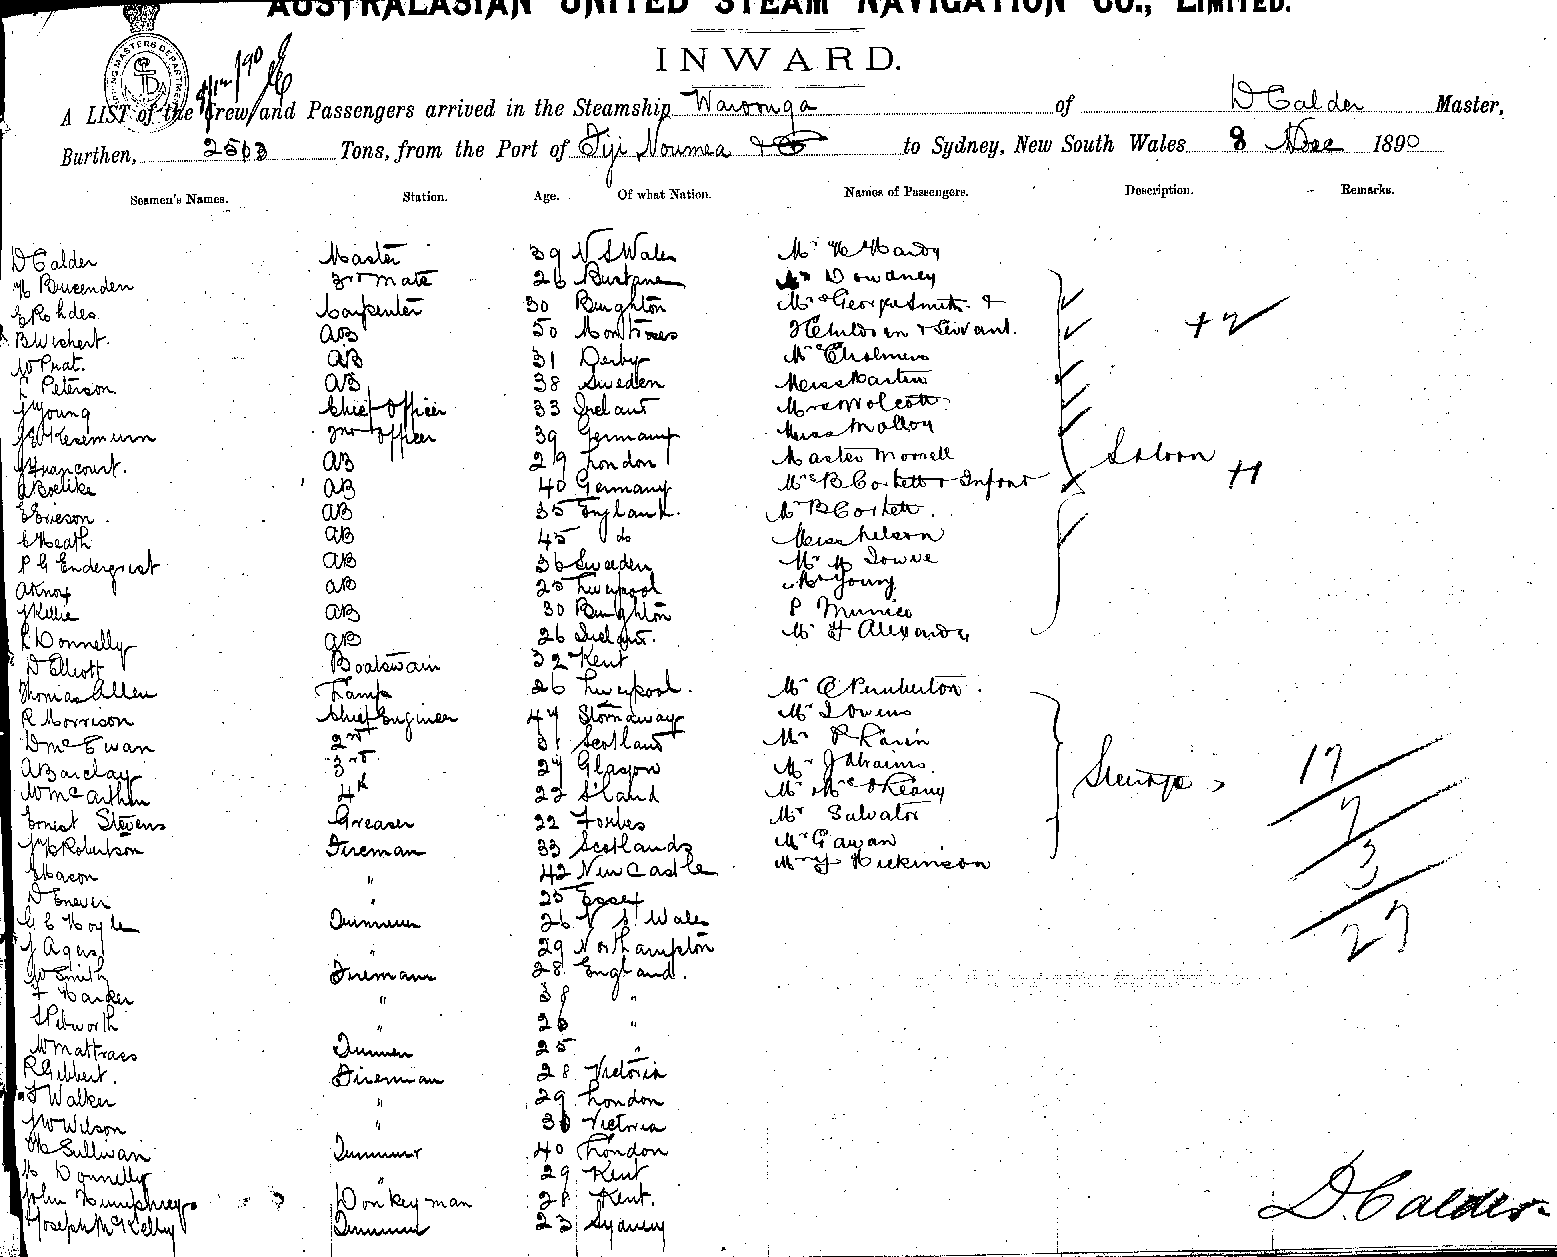 AUSTRALASIAN UNITED STEAM NAVIGATION CO., LIMITED.
INWARD.
A LIST of the Crew and Passengers arrived in the Steamship Waroonga of D Calder Master,
Burthen, 2513 Tons, from the Port of Fiji Noumea to Sydney, New South Wales 8 Dec 1890
Seamen's Names. Station. Age. Of what Nation. Names of Passengers. Description. Remarks.
D Calder Master 39 N S Wales Mr H Hardy
H Bucenden 3rd Mate 26 Dowdney
E Rohdes Carpenter 30 Brighton Mrs George Smith &
B Wichert. AB 50 Montrose Children & Servant. +2
W Prat. AB 31 Derby Chalmers
L Peterson AB 38 Sweden Miss Martin
J Young Chief Officer 33 Ireland Mrs Wolcott
2nd Officer 39 Germany Miss Malloy
AB 29 London Master Morrell Saloon
A Boelike AB 40 Germany Mrs B Corkett & Infant 11
E Ericson AB 35 England. Mr B Corkett.
C Heath AB 45 do Miss Nelson
P G Endergvist AB 36 Sweden Mr
A Knox AB 25 Liverpool Mr Young
J Kellie AB 30 Brighton P
R Donnelly AB 26 Ireland. Mr H Alexander
D Elliott Boatswain 32 Kent
Thomas Allen Lamps 26 Liverpool. Mr C Pemberton.
R Morrison Chief Engineer 47 Stornaway Mr J Owens
D McEwan 2nd 31 Scotland Mr
A Barclay 3rd 27 Glasgow Mr J Abrains Steerage 17
W McArthur 4th 22 Mr
Ernest Stevens Greaser 22 Forbes Mr Salvator 7
J H Robertson Fireman 33 Scotland Mr Gavan 3
E Mason " 42 New Castle Mr J Dickinson
D Enever " 25 Essex
G E Hoyle Trimmer 26 N S Wales 27
J Agers " 29 Northampton
W Smith Fireman 28 England.
F Harker " 38 "
" 26 "
W Mattrass Trimmer 25 "
R Gibbert. Fireman 28 Victoria
J Walker " 29 London
J W Wilson " 30 Victoria
Sullivan Trimmer 40 London
H Donnelly " 29 Kent
John Humphreys Donkeyman 28 Kent.
Joseph McKelly Trimmer 23 Sydney
D. Calder